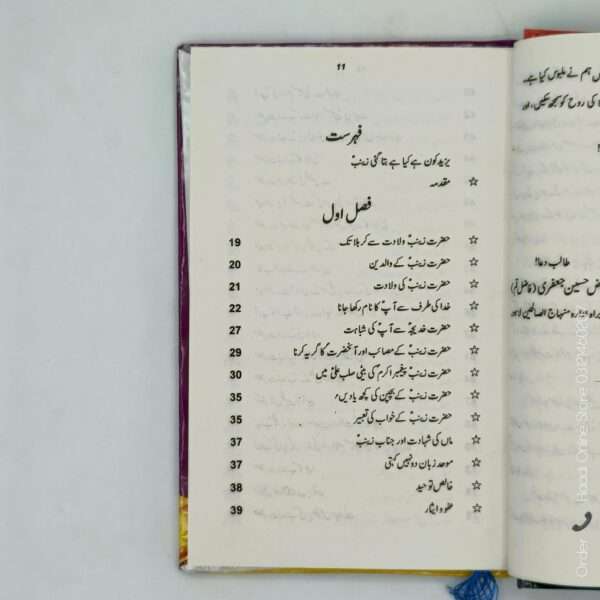 11
فہرست
یزید کون ہے کیا ہے بتا گئی زینبؑ
☆ مقدمہ
فصل اول
☆ حضرت زینبؑ ولادت سے کربلا تک 19
☆ حضرت زینبؑ کے والدین 20
☆ حضرت زینبؑ کی ولادت 21
☆ خدا کی طرف سے آپؑ کا نام رکھا جانا 22
☆ حضرت خدیجہؑ سے آپؑ کی شباہت 27
☆ حضرت زینبؑ کے مصائب اور آنحضرتؐ کا گریہ کرنا 29
☆ حضرت زینبؑ پیغمبر اکرمؐ کی بیٹی صلب علیؑ میں 30
☆ حضرت زینبؑ کے بچپن کی کچھ یادیں 35
☆ حضرت زینبؑ کے خواب کی تعبیر 35
☆ ماں کی شہادت اور جناب زینبؑ 37
☆ موحد زبان دو نہیں کہتی 37
☆ خالص توحید 38
☆ عفو و ایثار 39
ہم نے ملبوس کیا ہے۔
کی روح کو سمجھ سکیں، اور
طالب دعا!
حسین جعفری (فاضل قم)
ادارہ منہاج الصالحین لاہور
Order
Online Store